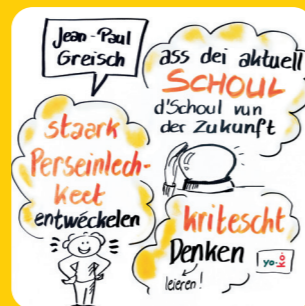 Jean-Paul
Greisch
ass dei aktuell
SCHOUL
d'Schoul vun
der Zukunft
staark
Perseinlech-
keet
entwéckelen
kritescht
Denken
léieren!
yo-
kó-